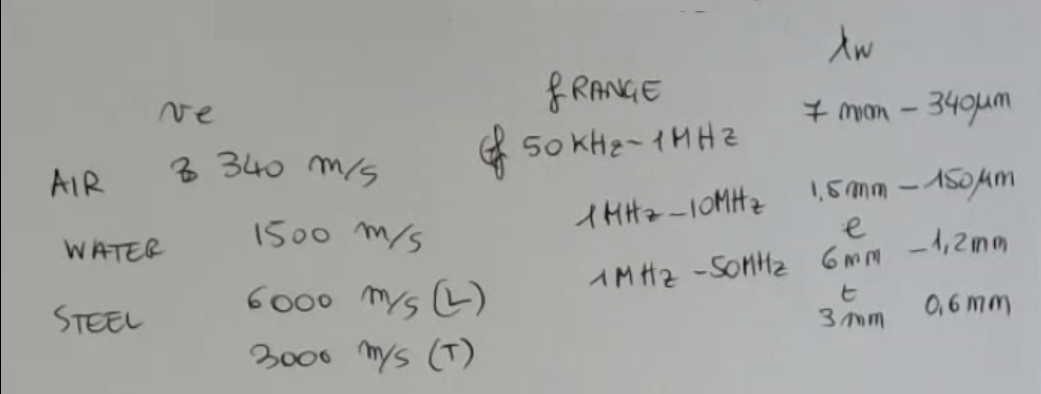 λw
ve f RANGE
AIR 340 m/s 50 KHz - 1 MHz 7 mm - 340 µm
WATER 1500 m/s 1 MHz - 10 MHz 1,5 mm - 150 µm
STEEL 6000 m/s (L) 1 MHz - 50 MHz l 6 mm - 1,2 mm
3000 m/s (T) t 3 mm 0,6 mm